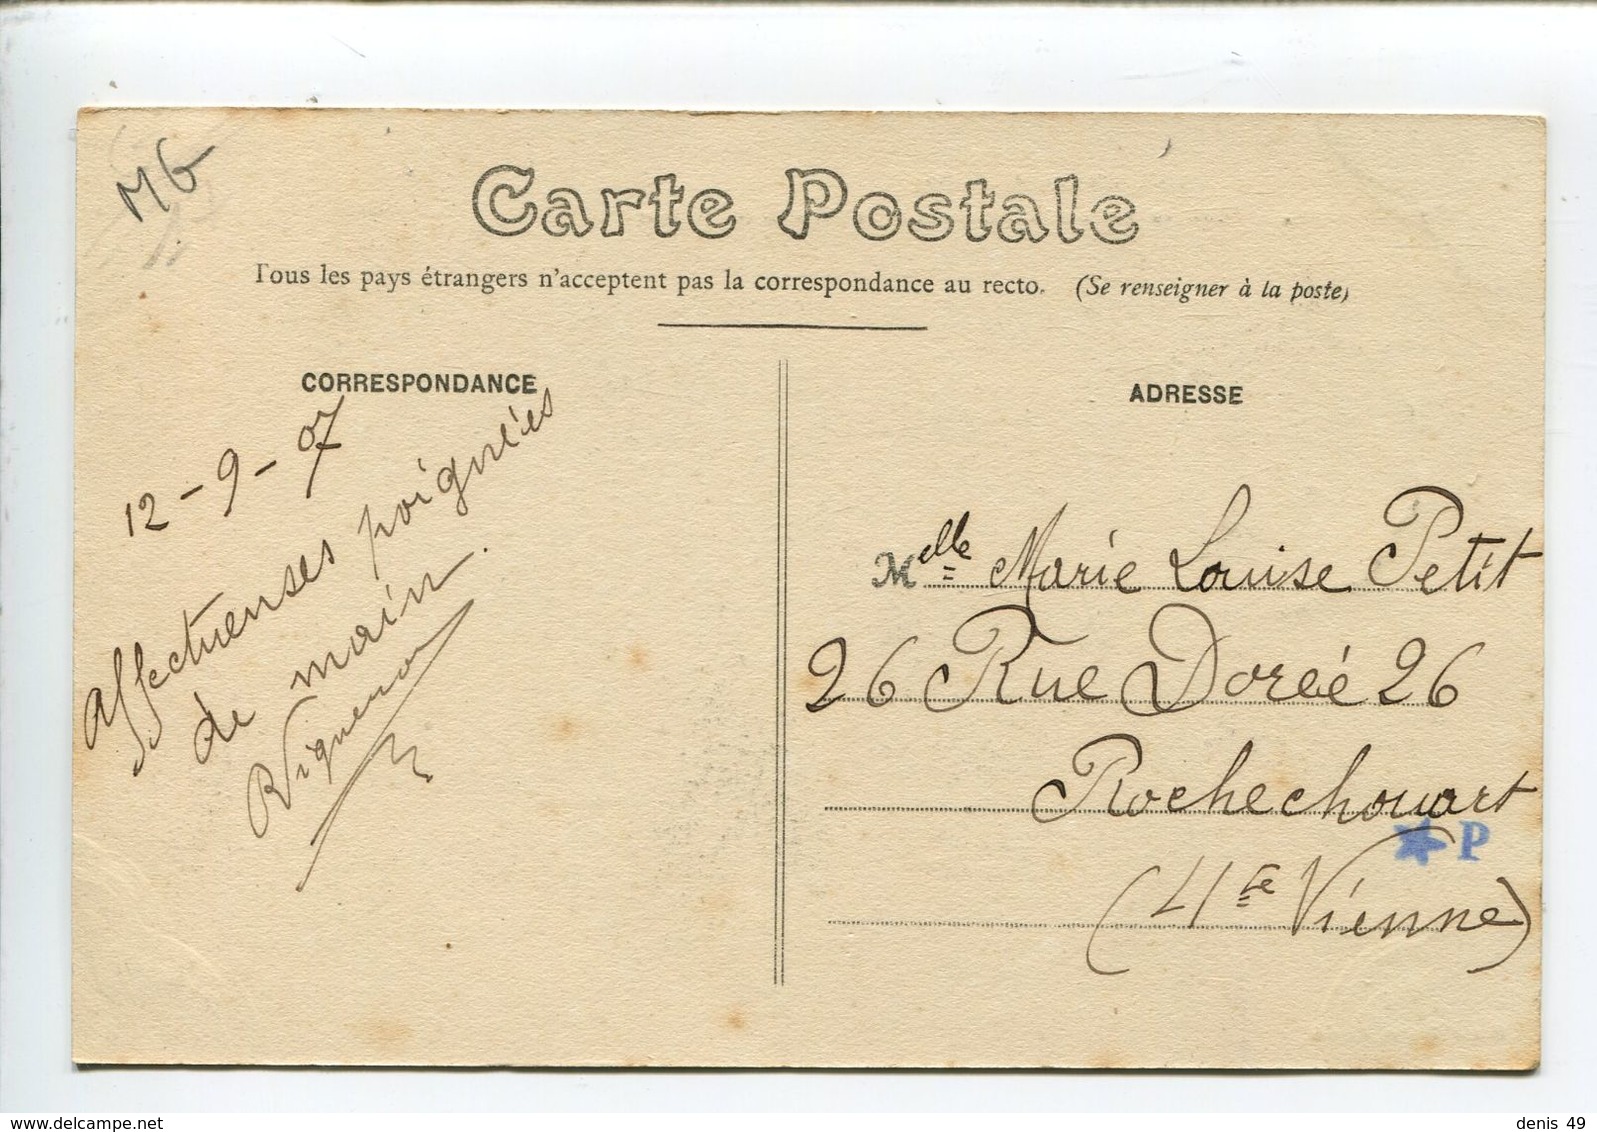 MG
Carte Postale
Tous les pays étrangers n'acceptent pas la correspondance au recto. (Se renseigner à la poste)
CORRESPONDANCE
12-9-07
Affectueuses poignées
de main.
ADRESSE
Melle Marie Louise Petit
26 Rue Dorée 26
Rochechouart
P
(Hte Vienne)
delcampe.net
denis 49